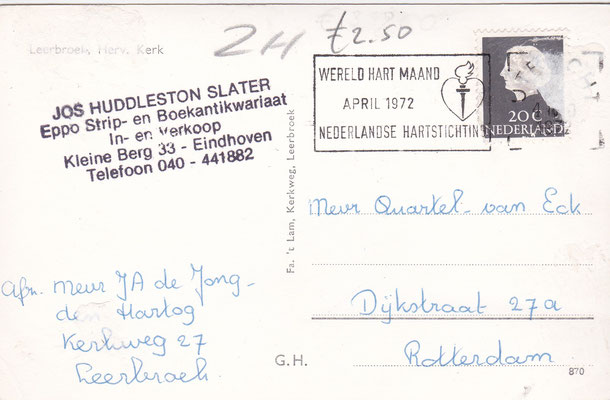 ZH
£2.50
Leerbroek, Herv. Kerk
JOS HUDDLESTON SLATER
Eppo Strip- en Boekantikwariaat
In- en Verkoop
Kleine Berg 33 - Eindhoven
Telefoon 040 - 441882
WERELD HART MAAND
APRIL 1972
NEDERLANDSE HARTSTICHTING
20c
NEDERLAND
Fa. 't Lam, Kerkweg, Leerbroek
Mevr Quartel- van Eck
Dijkstraat 27a
Rotterdam
Afn. Mevr JA de Jong-
den Hartog
Kerkweg 27
Leerbroek
G.H.
870